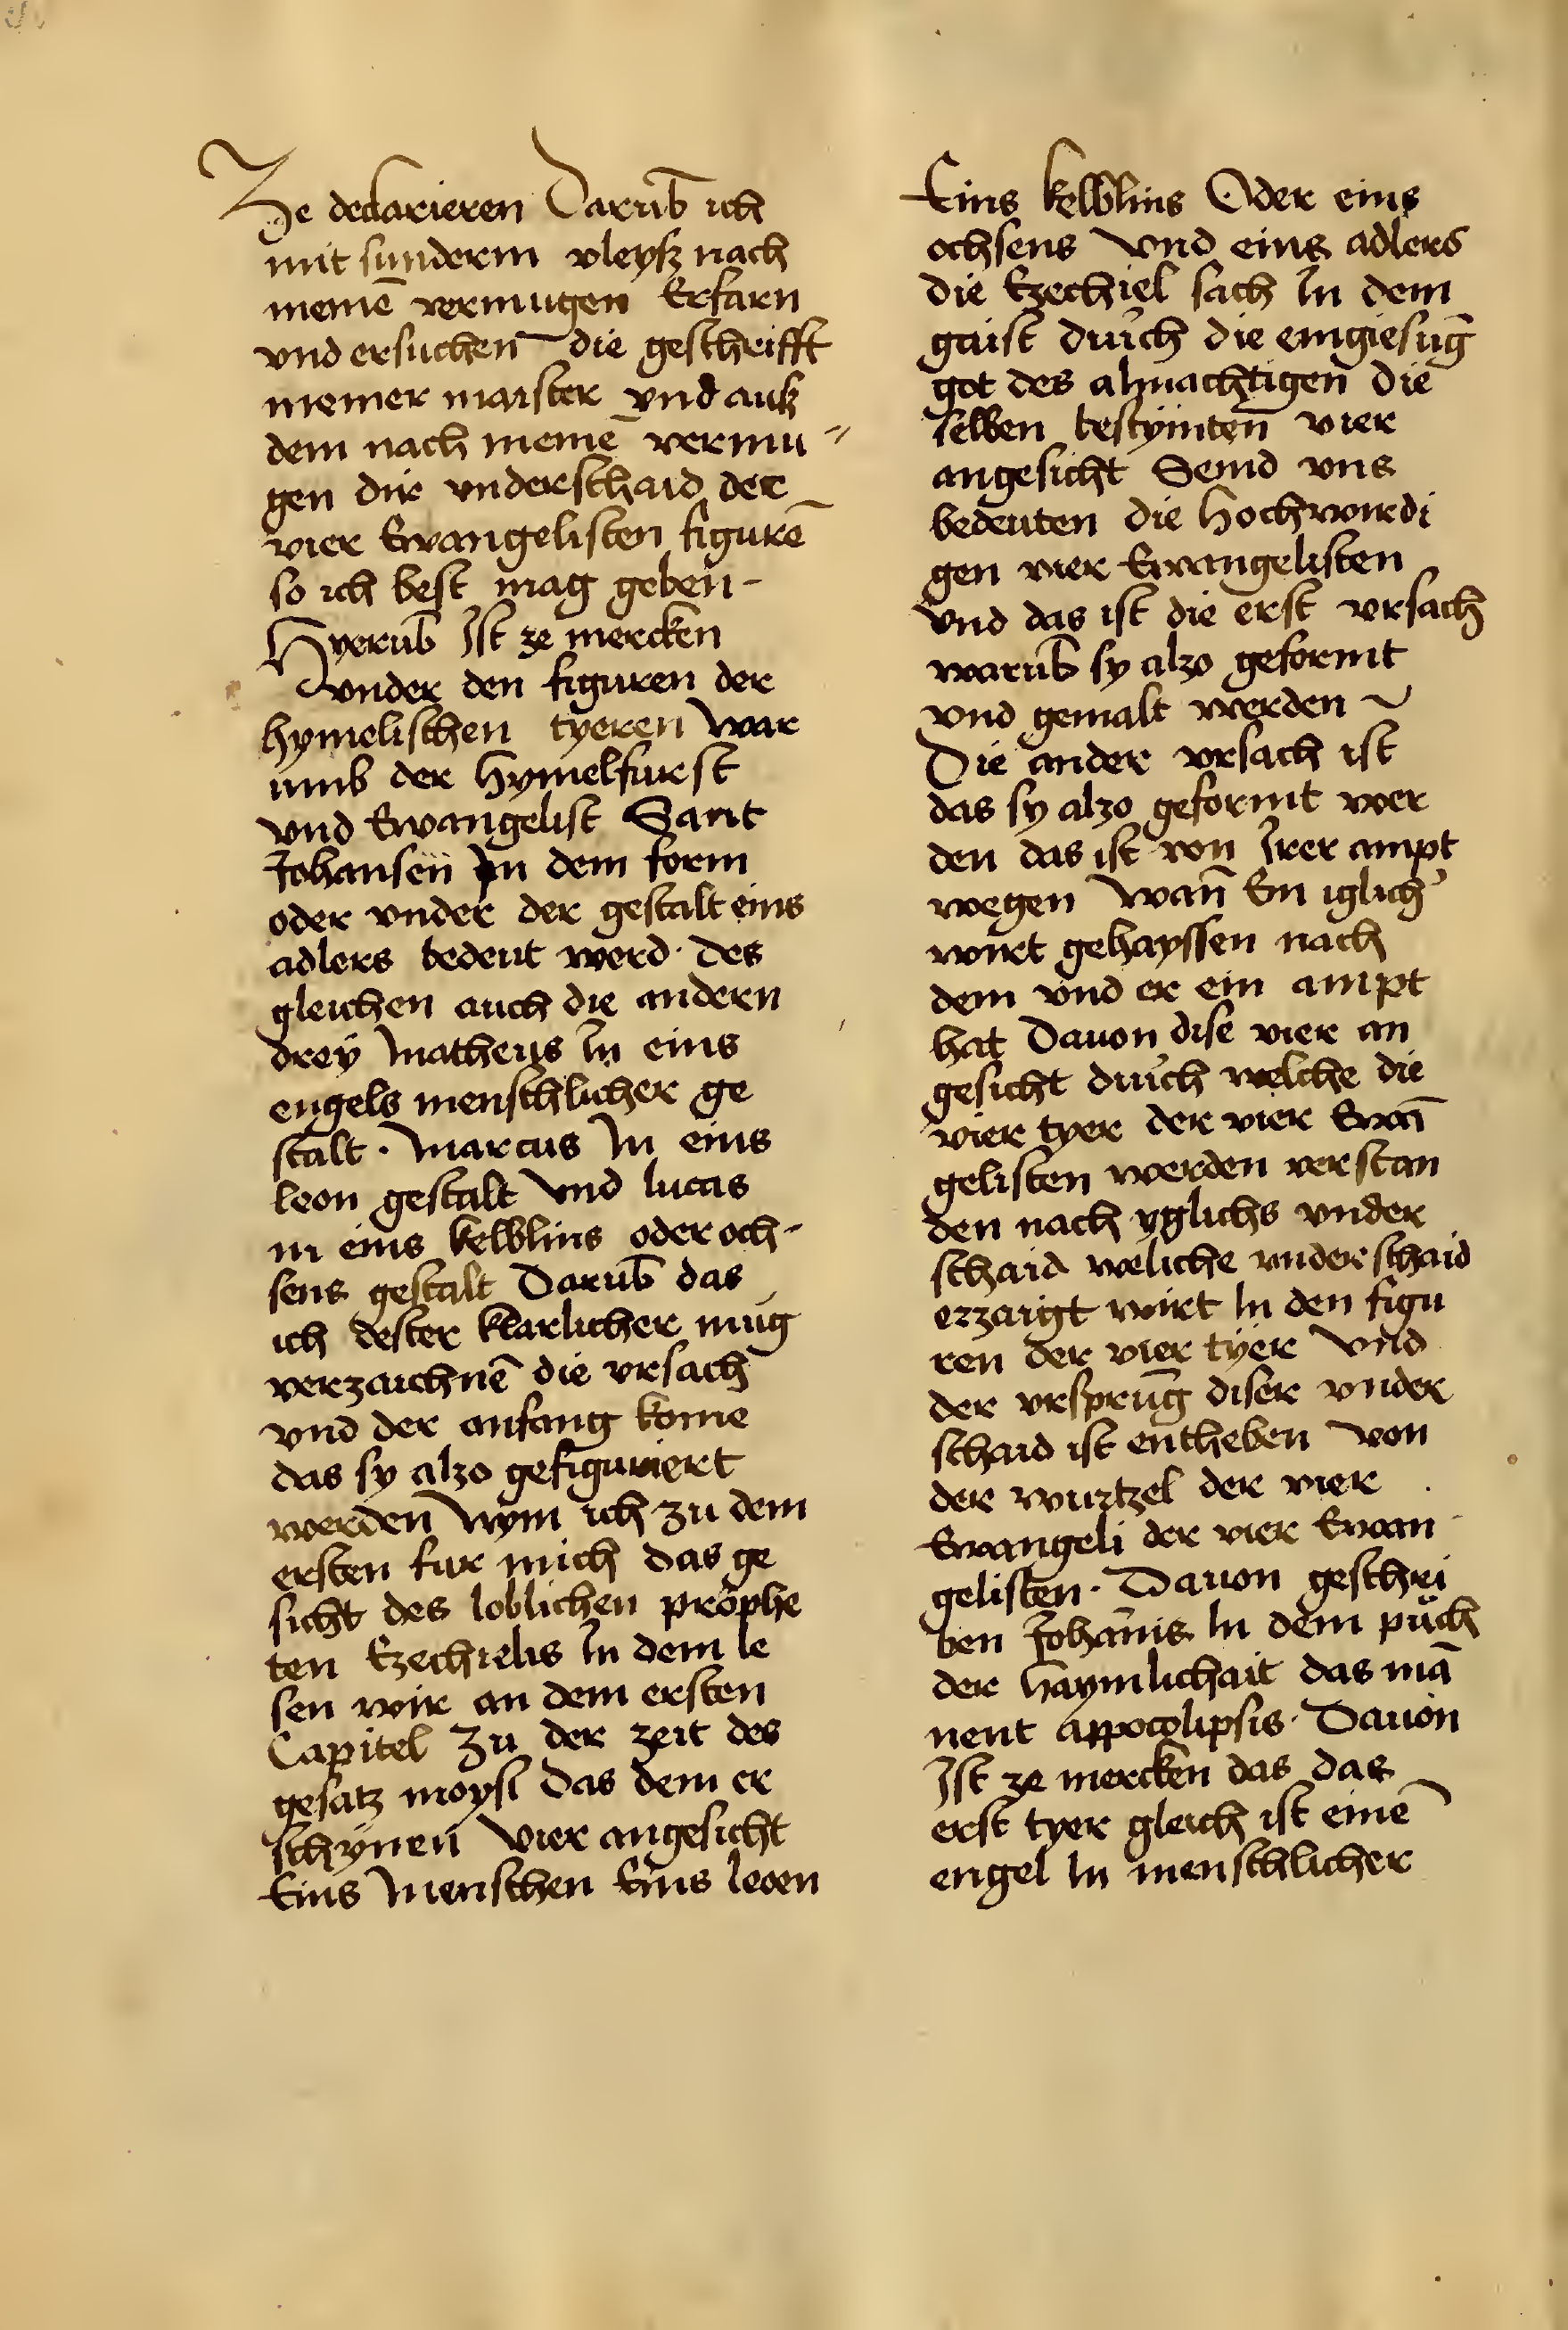 Ze declarieren Darub̄ ich
mit sunderm vleysz nach
meinē vermugen Erfarn
vnd ersuchen die geschrifft
meiner maister vnd ausz
dem nach meinē vermu
gen dir vnderschaid der
vier Ewangelisten figurē
so ich best mag geben
Hyerub̄ Ist ze mercken
vnder den figuren der
hymelischen tyeren war
umb der Hymelfurst
vnd Ewangelist Sant
Johansen In dem form
oder vnder der gestalt eins
adlers bedeut werd· des
gleichen auch die andern
drey Matheus In eins
engels menschlicher ge
stalt· Marcus In eins
leon gestalt Vnd lucas
in eins kelblins oder och-
sens gestalt Darub̄ das
ich dester klarlicher mug
verzaichnē die vrsach
vnd der anfang kome
das sy alzo gefiguriert
werden Nym ich zu dem
ersten fur mich das ge
sicht des loblichen prophe
ten Ezechielis In dem le
sen wir an dem ersten
Capitel Zu der zeit des
gesatz moysi das dem er
schynen vier angesicht
Eins Menschen Eins leoen
Eins kelblins Oder eins
ochsens Vnd eins adlers
die Ezechiel sach In dem
gaist durch die eingiesuḡ
got des almachtigen Die
selben bestymten vier
angesicht Seind vns
bedeuten die Hochwurdi
gen vier Ewangelisten
Vnd das ist die erst vrsach
warub̄ sy alzo geformt
vnd gemalt werden ~
Die ander vrsach ist
das sy alzo geformt wer
den das ist von Irer ampt
wegen Wan̄ Ein iglich'
wirt gehayssen nach
dem vnd er ein ampt
hat Dauon dise vier an
gesicht durch welche die
vier tyer der vier Ewan̄
gelisten werden verstan
den nach yglichs vnder
schaid weliche vnderschaid
erzaigt wirt In den figu
ren der vier tyer Vnd
der vrspruḡ diser vnder
schaid ist entheben Von
der wurtzel der vier
Ewangeli der vier Ewan
gelisten· Dauon geschri
ben Johan̄is In dem puch
der Haymlichait das mā
nent appocolipsis· Dauon
Ist ze mercken das das
erst tyer gleich ist einē
engel In menschlicher